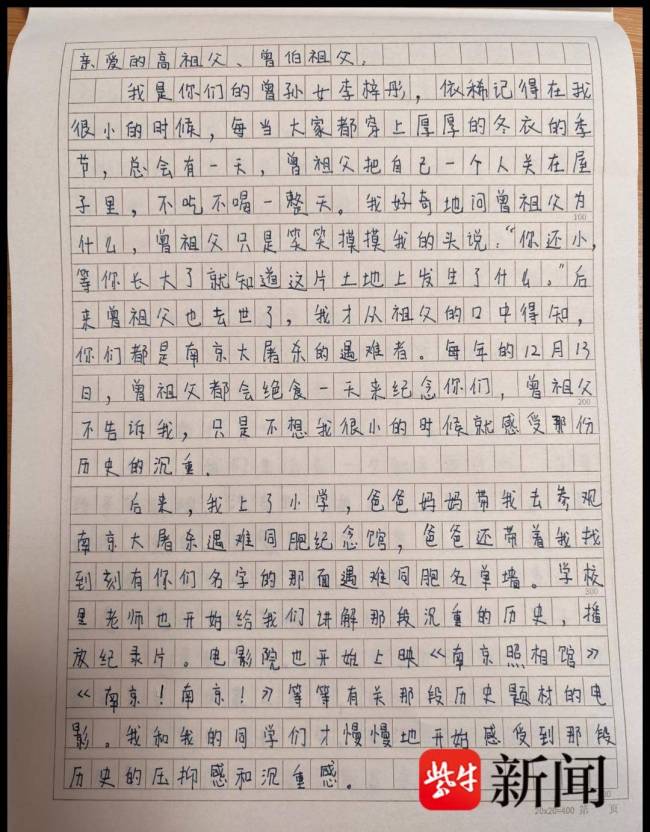 亲爱的高祖父、曾伯祖父，
我是你们的曾孙女李梓彤，依稀记得在我
很小的时候，每当大家都穿上厚厚的冬衣的季
节，总会有一天，曾祖父把自己一个人关在屋
子里，不吃不喝一整天。我好奇地问曾祖父为
100
什么，曾祖父只是笑笑摸摸我的头说：“你还小，
等你长大了就知道这片土地上发生了什么。”后
来曾祖父也去世了，我才从祖父的口中得知，
你们都是南京大屠杀的遇难者。每年的12月13
日，曾祖父都会绝食一天来纪念你们，曾祖父
200
不告诉我，只是不想我很小的时候就感受那份
历史的沉重。
后来，我上了小学，爸爸妈妈带我去参观
南京大屠杀遇难同胞纪念馆，爸爸还带着我找
到刻有你们名字的那面遇难同胞名单墙。学校
300
里老师也开始给我们讲解那段沉重的历史，播
放纪录片。电影院也开始上映《南京照相馆》
《南京！南京！》等等有关那段历史题材的电
影。我和我的同学们才慢慢地开始感受到那段
历史的压抑感和沉重感。
紫牛新闻
20x20=400 第 页